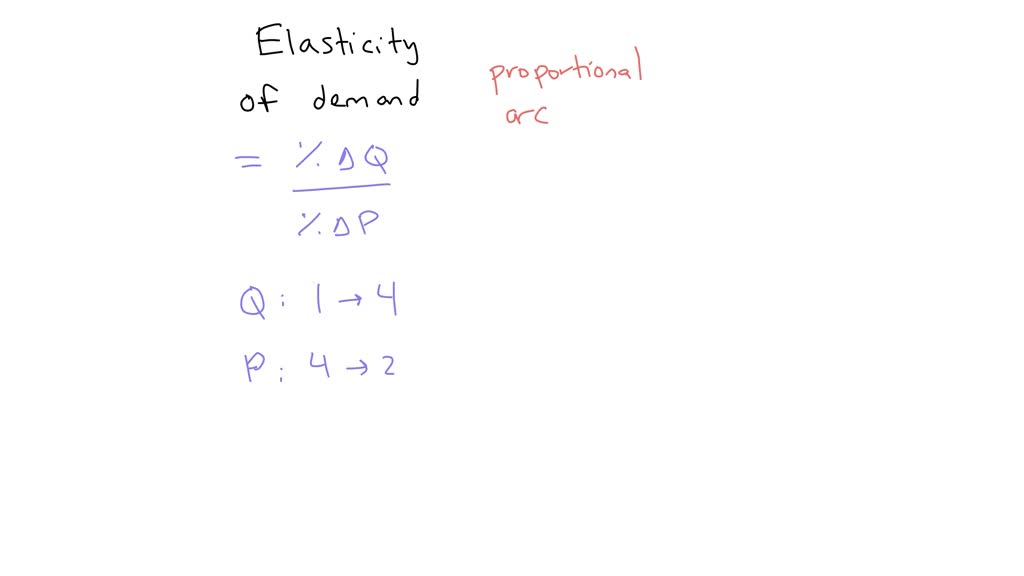 Elasticity
of demand
proportional
arc
= % ΔQ
% ΔP
Q: 1 → 4
P: 4 → 2